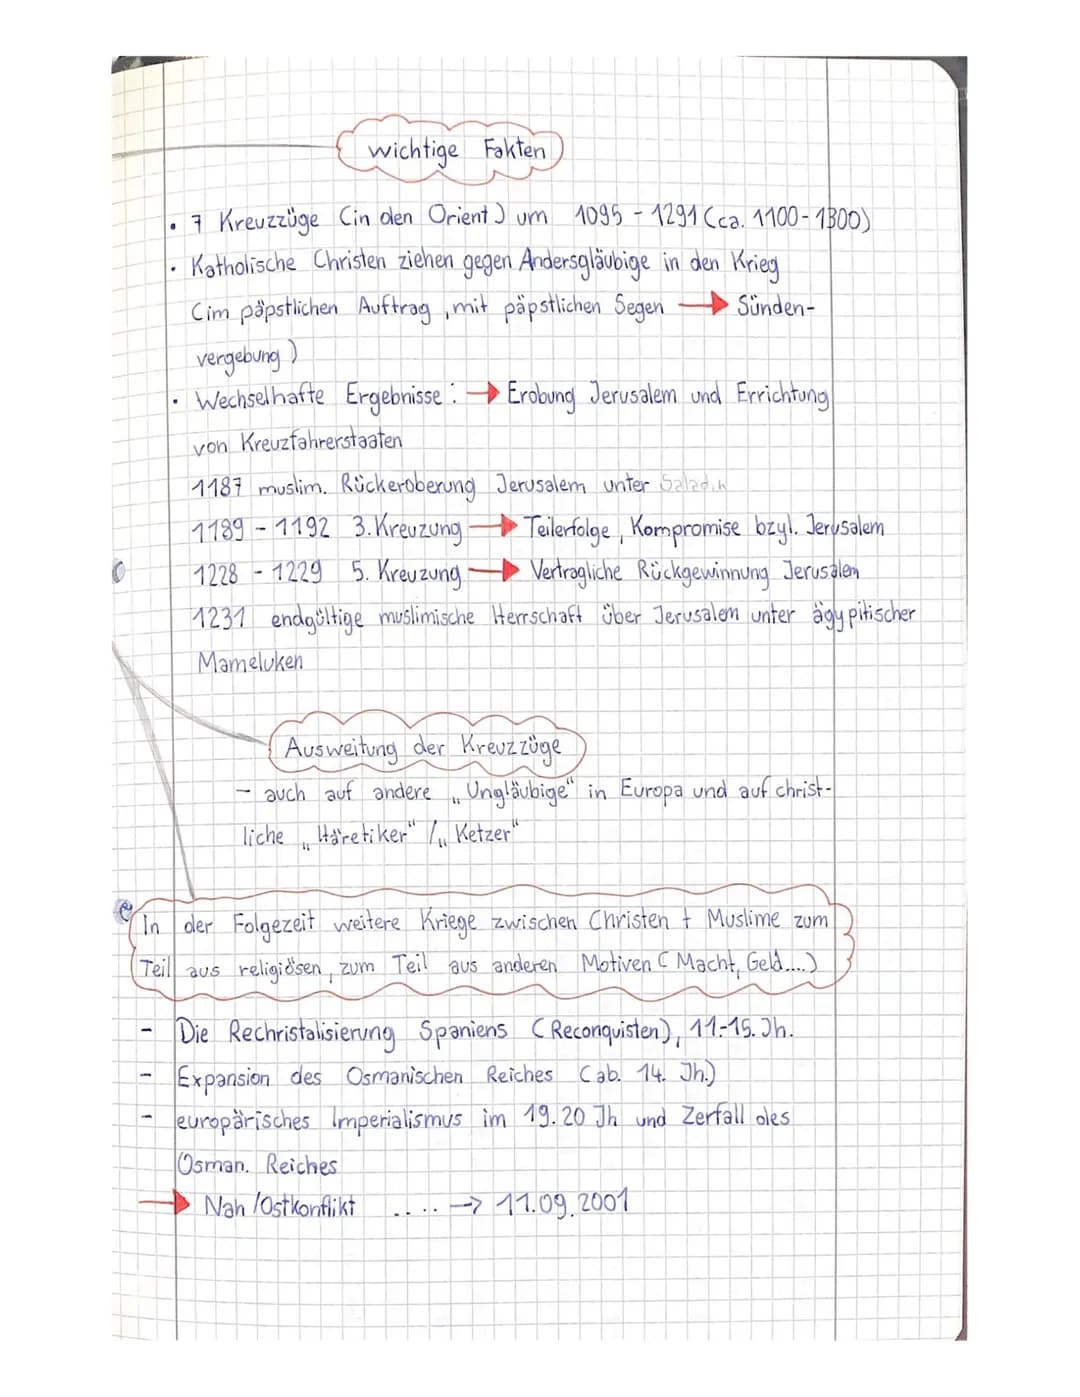 wichtige Fakten
• 7 Kreuzzüge (in den Orient) um 1095 - 1291 (ca. 1100-1300)
• Katholische Christen ziehen gegen Andersgläubige in den Krieg
(im päpstlichen Auftrag, mit päpstlichen Segen → Sünden-
vergebung)
• Wechselhafte Ergebnisse: → Erobung Jerusalem und Errichtung
von Kreuzfahrerstaaten
1187 muslim. Rückeroberung Jerusalem unter Saladin
1189 - 1192 3. Kreuzung → Teilerfolge, Kompromise bzgl. Jerusalem
1228 - 1229 5. Kreuzung → Vertragliche Rückgewinnung Jerusalem
1231 endgültige muslimische Herrschaft über Jerusalem unter ägypitischer
Mameluken
Ausweitung der Kreuzzüge
- auch auf andere „Ungläubige" in Europa und auf christ-
liche „Häretiker" / „Ketzer"
In der Folgezeit weitere Kriege zwischen Christen + Muslime zum
Teil aus religiösen, zum Teil aus anderen Motiven (Macht, Geld....)
- Die Rechristalisierung Spaniens (Reconquisten), 11.-15. Jh.
- Expansion des Osmanischen Reiches (ab. 14. Jh.)
- europärisches Imperialismus im 19. 20 Jh und Zerfall des
Osman. Reiches
→ Nah/Ostkonflikt .... → 11.09.2001